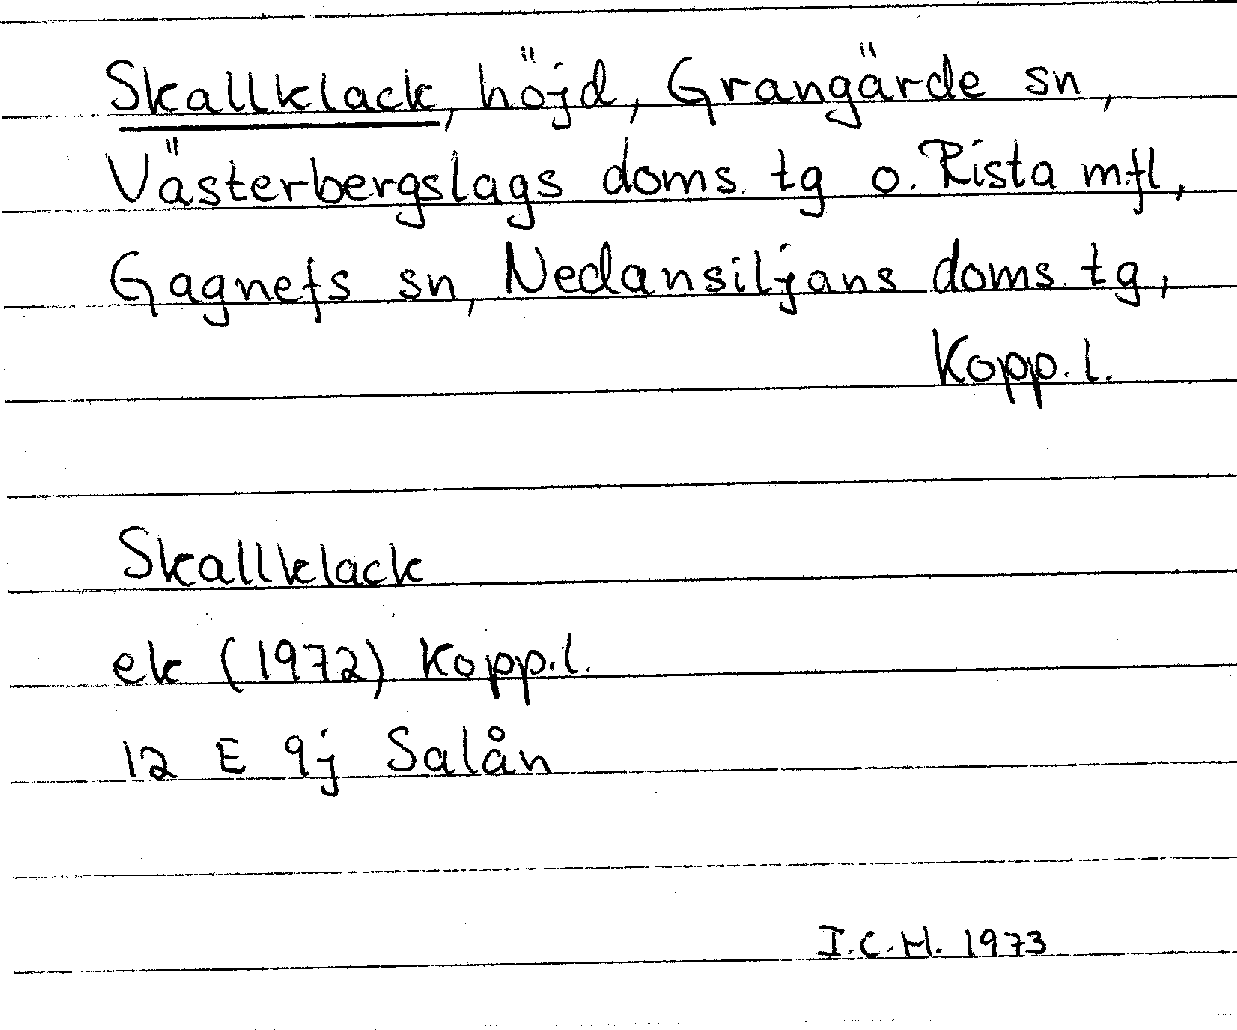 Skallklack, höjd, Grangärde sn,
Västerbergslags doms. tg o. Rista mfl,
Gagnefs sn, Nedansiljans doms. tg,
Kopp. l.
Skallklack
ek (1972) Kopp. l.
12 E 9j Salån
I.C.H. 1973